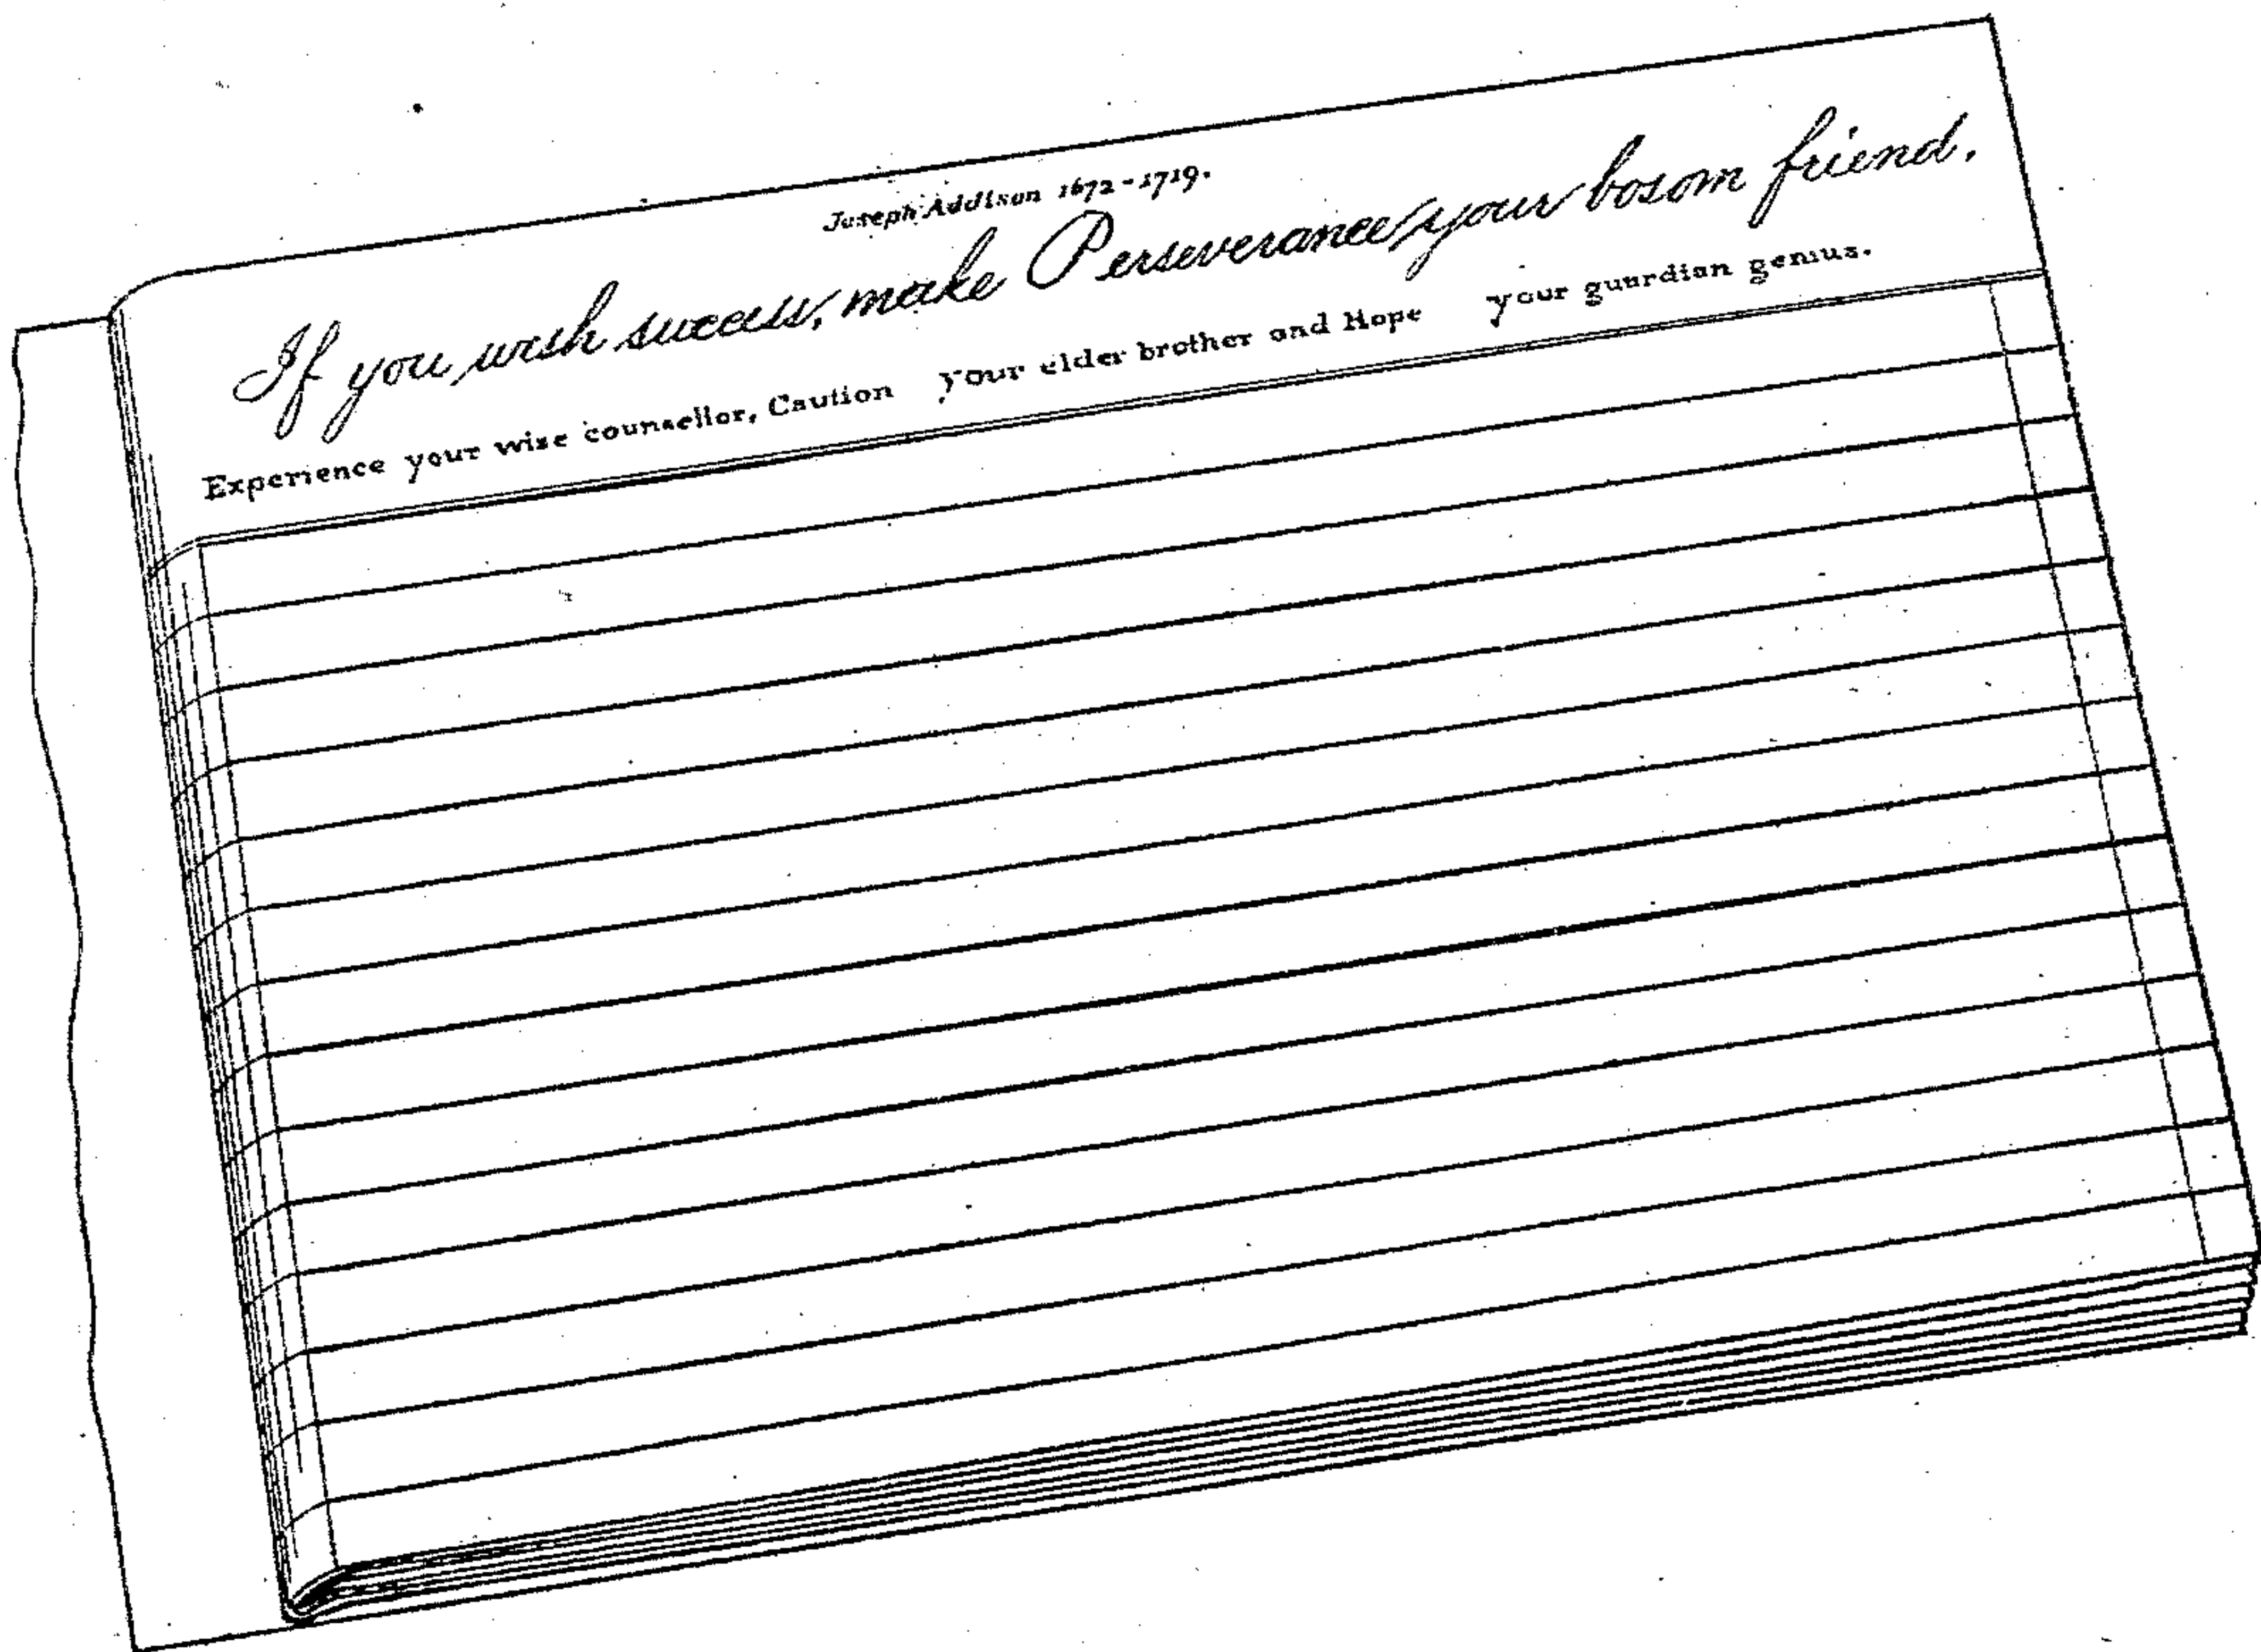 Joseph Addison 1672-1719.
If you wish success, make Perseverance your bosom friend,
Experience your wise counsellor, Caution your elder brother and Hope your guardian genius.